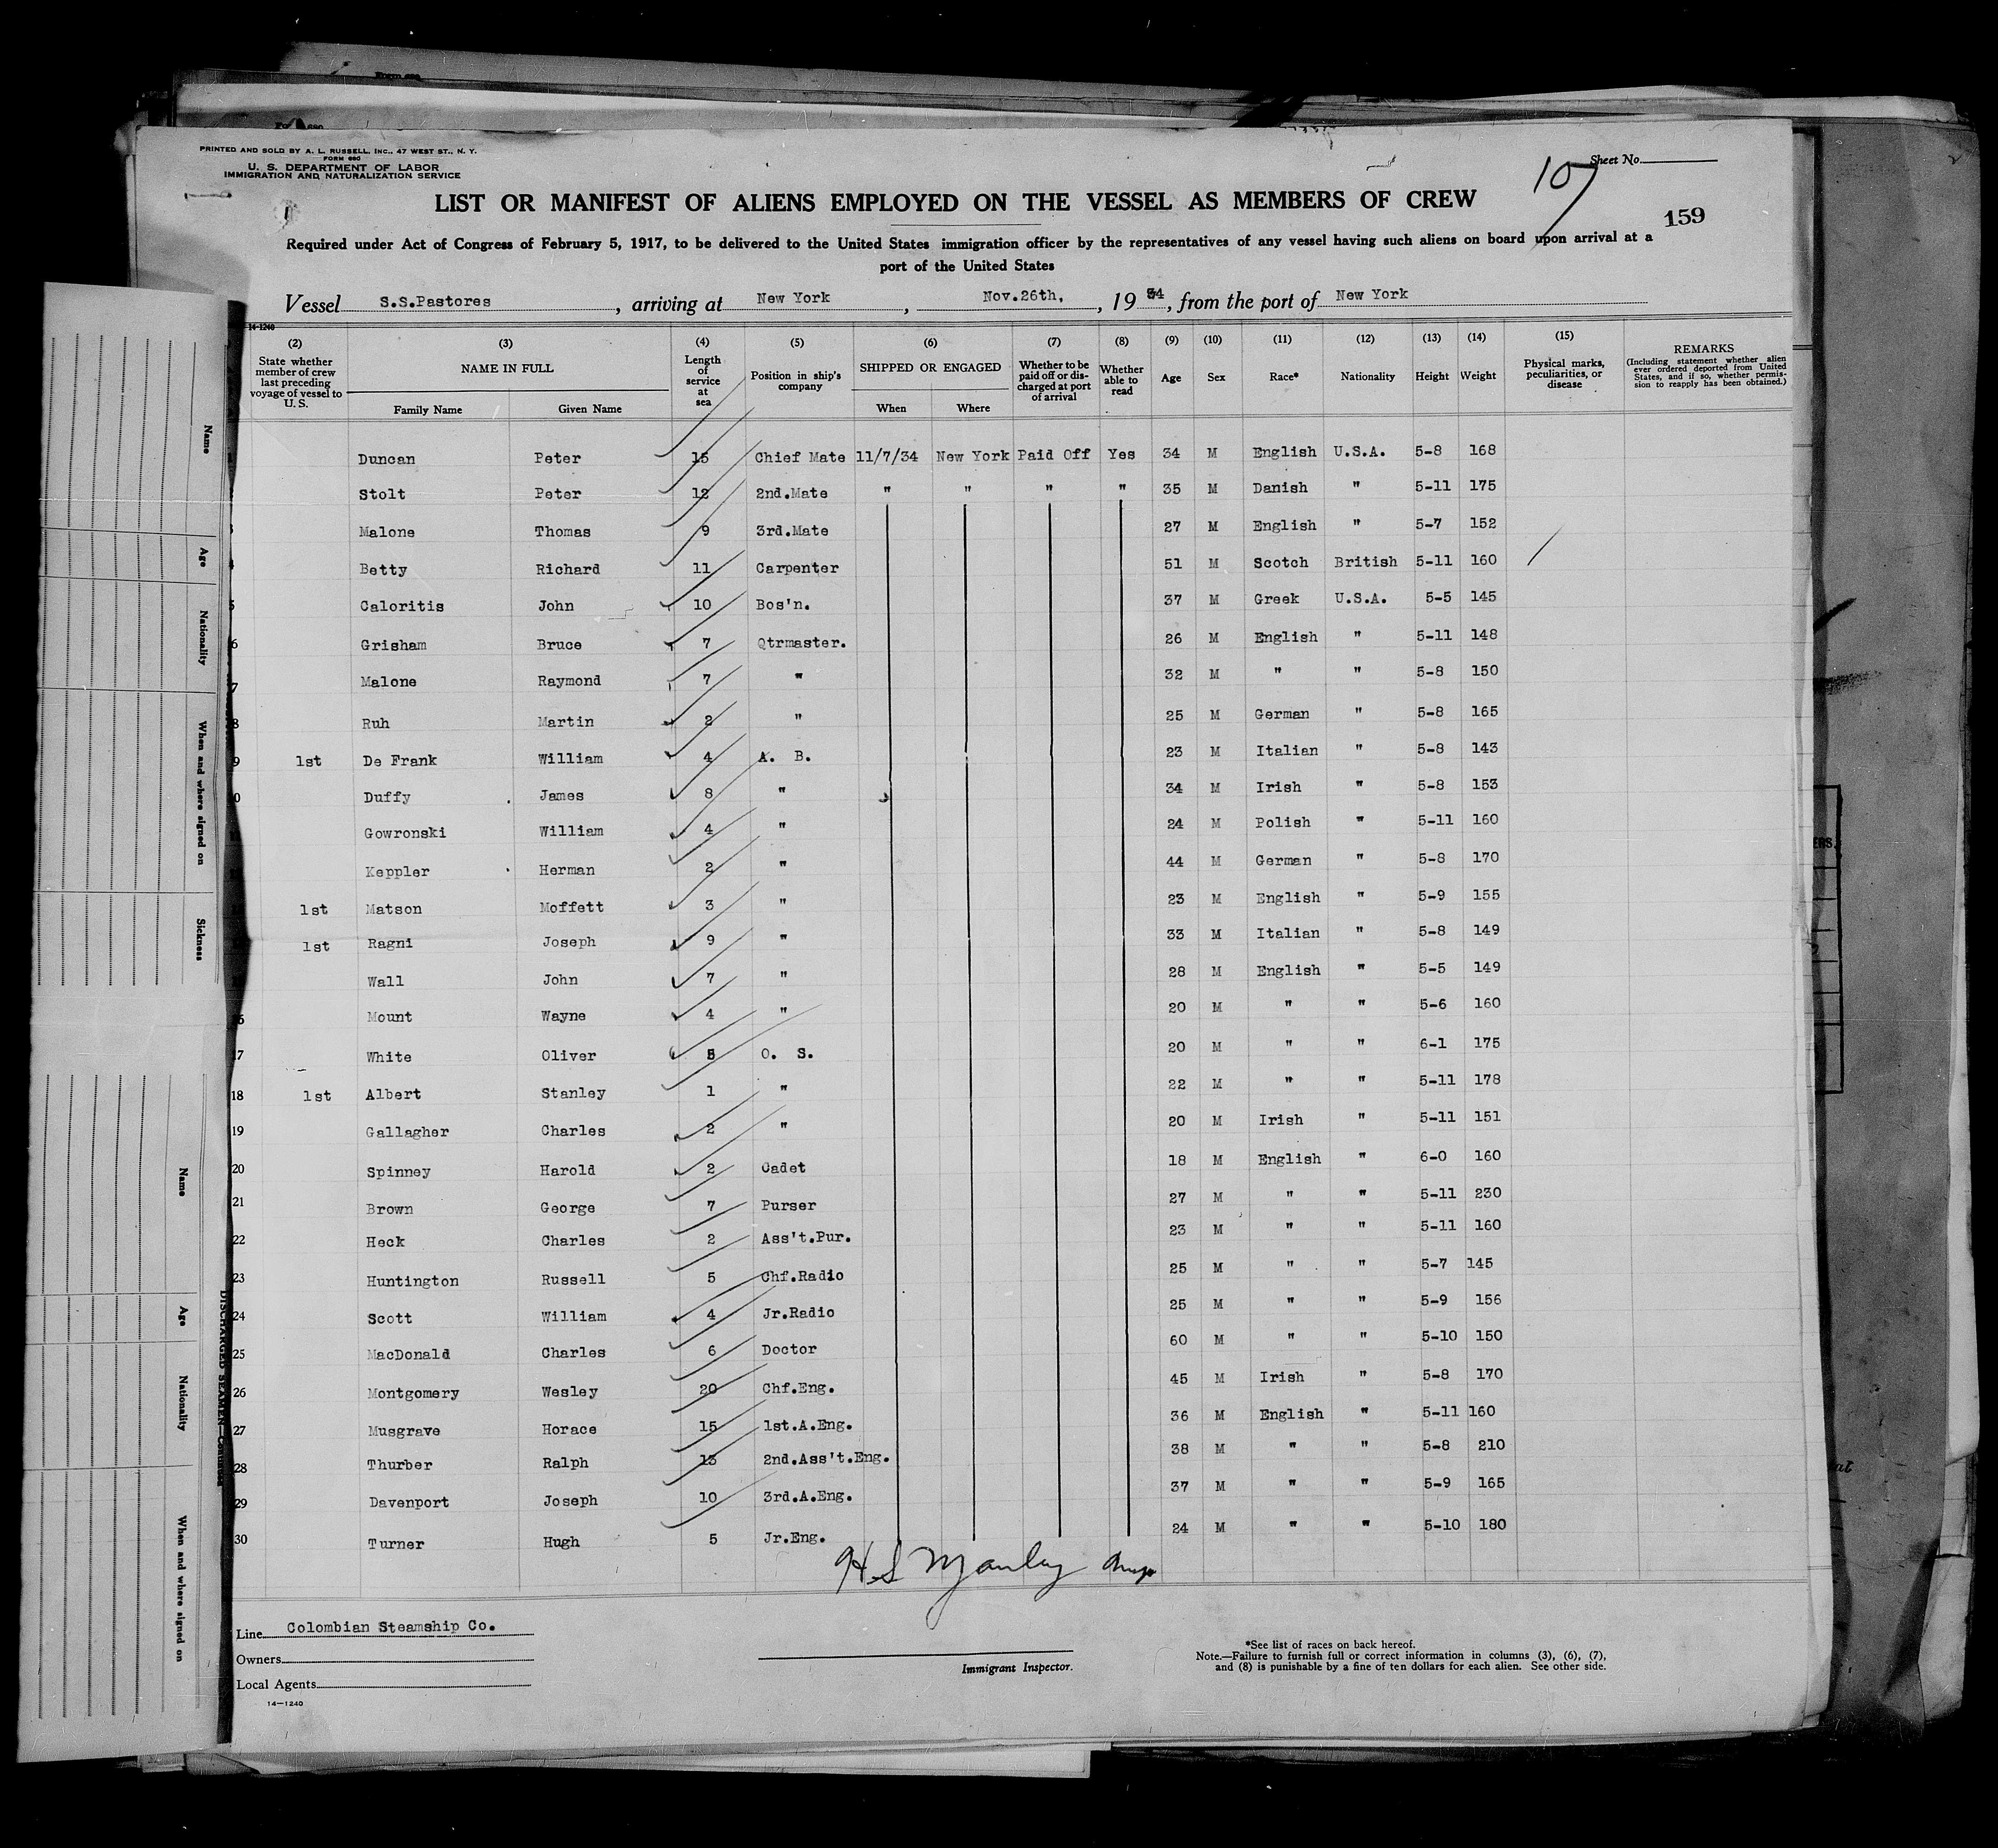 PRINTED AND SOLD BY A. L. RUSSELL, INC., 47 WEST ST., N. Y.
FORM 680
U. S. DEPARTMENT OF LABOR
IMMIGRATION AND NATURALIZATION SERVICE
Sheet No.
107
159
LIST OR MANIFEST OF ALIENS EMPLOYED ON THE VESSEL AS MEMBERS OF CREW
Required under Act of Congress of February 5, 1917, to be delivered to the United States immigration officer by the representatives of any vessel having such aliens on board upon arrival at a
port of the United States
Vessel S.S.Pastores, arriving at New York, Nov.26th, 1934, from the port of New York
14-1240
(2) State whether member of crew last preceding voyage of vessel to U. S. (3) NAME IN FULL Family Name Given Name (4) Length of service at sea (5) Position in ship's company (6) SHIPPED OR ENGAGED When Where (7) Whether to be paid off or discharged at port of arrival (8) Whether able to read (9) Age (10) Sex (11) Race* (12) Nationality (13) Height (14) Weight (15) Physical marks, peculiarities, or disease REMARKS (Including statement whether alien ever ordered deported from United States, and if so, whether permission to reapply has been obtained.)
Duncan Peter 15 Chief Mate 11/7/34 New York Paid Off Yes 34 M English U.S.A. 5-8 168
Stolt Peter 12 2nd.Mate " " " " 35 M Danish " 5-11 175
Malone Thomas 9 3rd.Mate 27 M English " 5-7 152
Betty Richard 11 Carpenter 51 M Scotch British 5-11 160
5 Caloritis John 10 Bos'n. 37 M Greek U.S.A. 5-5 145
6 Grisham Bruce 7 Qtrmaster. 26 M English " 5-11 148
7 Malone Raymond 7 " 32 M " " 5-8 150
8 Ruh Martin 2 " 25 M German " 5-8 165
9 1st De Frank William 4 A. B. 23 M Italian " 5-8 143
0 Duffy James 8 " 34 M Irish " 5-8 153
Gowronski William 4 " 24 M Polish " 5-11 160
Keppler Herman 2 " 44 M German " 5-8 170
1st Matson Moffett 3 " 23 M English " 5-9 155
1st Ragni Joseph 9 " 33 M Italian " 5-8 149
Wall John 7 " 28 M English " 5-5 149
6 Mount Wayne 4 " 20 M " " 5-6 160
17 White Oliver 5 O. S. 20 M " " 6-1 175
18 1st Albert Stanley 1 " 22 M " " 5-11 178
19 Gallagher Charles 2 " 20 M Irish " 5-11 151
20 Spinney Harold 2 Cadet 18 M English " 6-0 160
21 Brown George 7 Purser 27 M " " 5-11 230
22 Heck Charles 2 Ass't.Pur. 23 M " " 5-11 160
23 Huntington Russell 5 Chf.Radio 25 M " " 5-7 145
24 Scott William 4 Jr.Radio 25 M " " 5-9 156
25 MacDonald Charles 6 Doctor 60 M " " 5-10 150
26 Montgomery Wesley 20 Chf.Eng. 45 M Irish " 5-8 170
27 Musgrave Horace 15 1st.A.Eng. 36 M English " 5-11 160
28 Thurber Ralph 13 2nd.Ass't.Eng. 38 M " " 5-8 210
29 Davenport Joseph 10 3rd.A.Eng. 37 M " " 5-9 165
30 Turner Hugh 5 Jr.Eng. 24 M " " 5-10 180
H S Manley
Line Colombian Steamship Co.
Owners
Local Agents
14—1240
Immigrant Inspector.
*See list of races on back hereof.
Note.—Failure to furnish full or correct information in columns (3), (6), (7),
and (8) is punishable by a fine of ten dollars for each alien. See other side.
Name
Age
Nationality
When and where signed on
Sickness
Name
Age
Nationality
When and where signed on
DISCHARGED SEAMEN—Continued